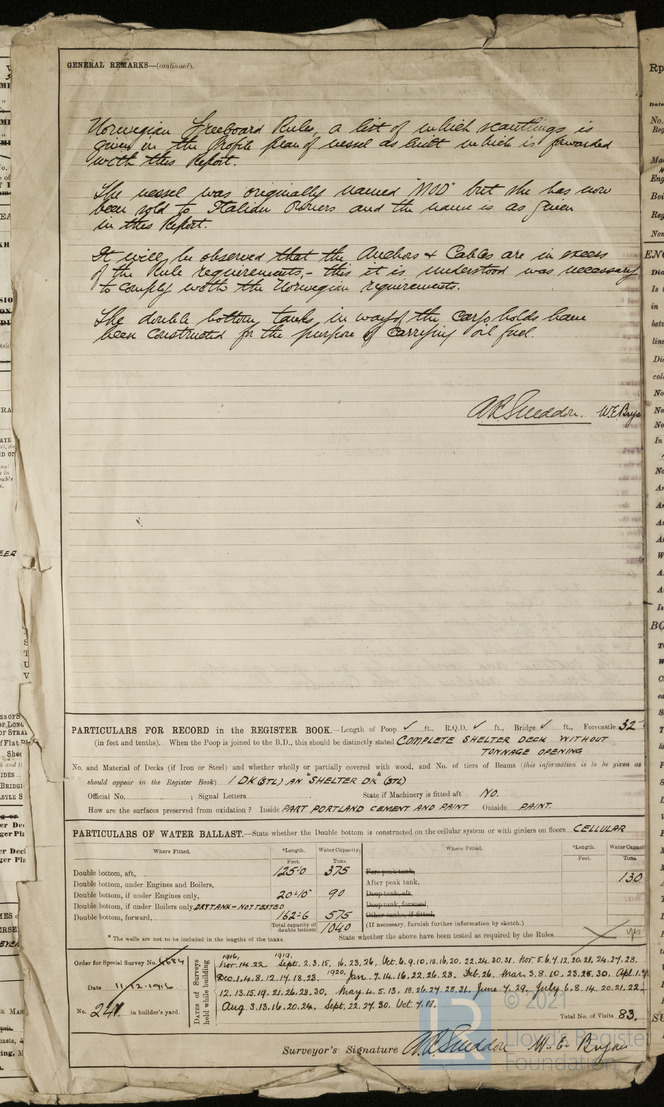 GENERAL REMARKS—(continued).
Norwegian Freeboard Rules, a list of which scantlings is
given in the Profile plan of vessel as built which is forwarded
with this Report.
The vessel was originally named "MOD" but she has now
been sold to Italian Owners and the name is as given
in this Report.
It will be observed that the Anchors & Cables are in excess
of the Rule requirements, – this it is understood was necessary
to comply with the Norwegian requirements.
The double bottom tanks in way of the cargo holds have
been constructed for the purpose of carrying oil fuel.
W.E. Brya
PARTICULARS FOR RECORD in the REGISTER BOOK.—Length of Poop ✓ ft., R.Q.D. ✓ ft., Bridge ✓ ft., Forecastle 32
(in feet and tenths). When the Poop is joined to the B.D., this should be distinctly stated COMPLETE SHELTER DECK WITHOUT
TONNAGE OPENING
No. and Material of Decks (if Iron or Steel) and whether wholly or partially covered with wood, and No. of tiers of Beams (this information is to be given as
should appear in the Register Book) 1 DK (STL) AN "SHELTER DK" (STL)
Official No. ; Signal Letters State if Machinery is fitted aft NO.
How are the surfaces preserved from oxidation? Inside PART PORTLAND CEMENT AND PAINT Outside PAINT.
PARTICULARS OF WATER BALLAST.—State whether the Double bottom is constructed on the cellular system or with girders on floors CELLULAR
Where Fitted. *Length. Water Capacity. Where Fitted. *Length. Water Capacity
Feet. Tons. Feet. Tons
Double bottom, aft, 125·0 375 Fore peak tank,
Double bottom, under Engines and Boilers, After peak tank, 130
Double bottom, if under Engines only, 20·10 90 Deep tank, aft,
Double bottom, if under Boilers only DRY TANK – NOT TESTED Deep tank, forward,
Double bottom, forward, 162·6 575 Other tanks, if fitted,
Total capacity of double bottom 1040 (If necessary, furnish further information by sketch.)
* The wells are not to be included in the lengths of the tanks. State whether the above have been tested as required by the Rules yes
Order for Special Survey No. 4684
Date 11/12·1916
No. 241 in builder's yard.
DATES of Survey held while building
1916. 1919.
Nov. 14.22. Sept. 2.3.15. 16.23.26. Oct. 6.9.10.13.16.20. 22.24.30.31. Nov. 5.6.7.12.20.21.24.27.28.
Dec. 1.4.8.12.17.18.23. 1920. Jan. 7.14.16.22.26.28. Feb. 26. Mar. 3.8.10.23.25.30. Apl. 1.9
12.13.15.19.21.26.28.30. May. 4.5.13.18.26.27.28.31. June 7.29. July 6.8.14.20.21.22.
Aug. 3.13.16.20.24. Sept. 22.27.30. Oct. 7.18.
Total No. of Visits 83.
Surveyor's Signature W. E. Bryan
© 2021
Lloyd's Register
Foundation